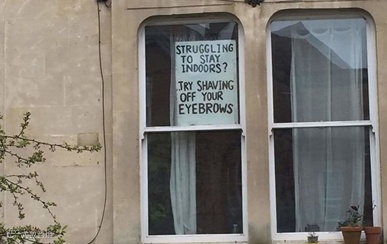 STRUGGLING
TO STAY
INDOORS?
TRY SHAVING
OFF YOUR
EYEBROWS